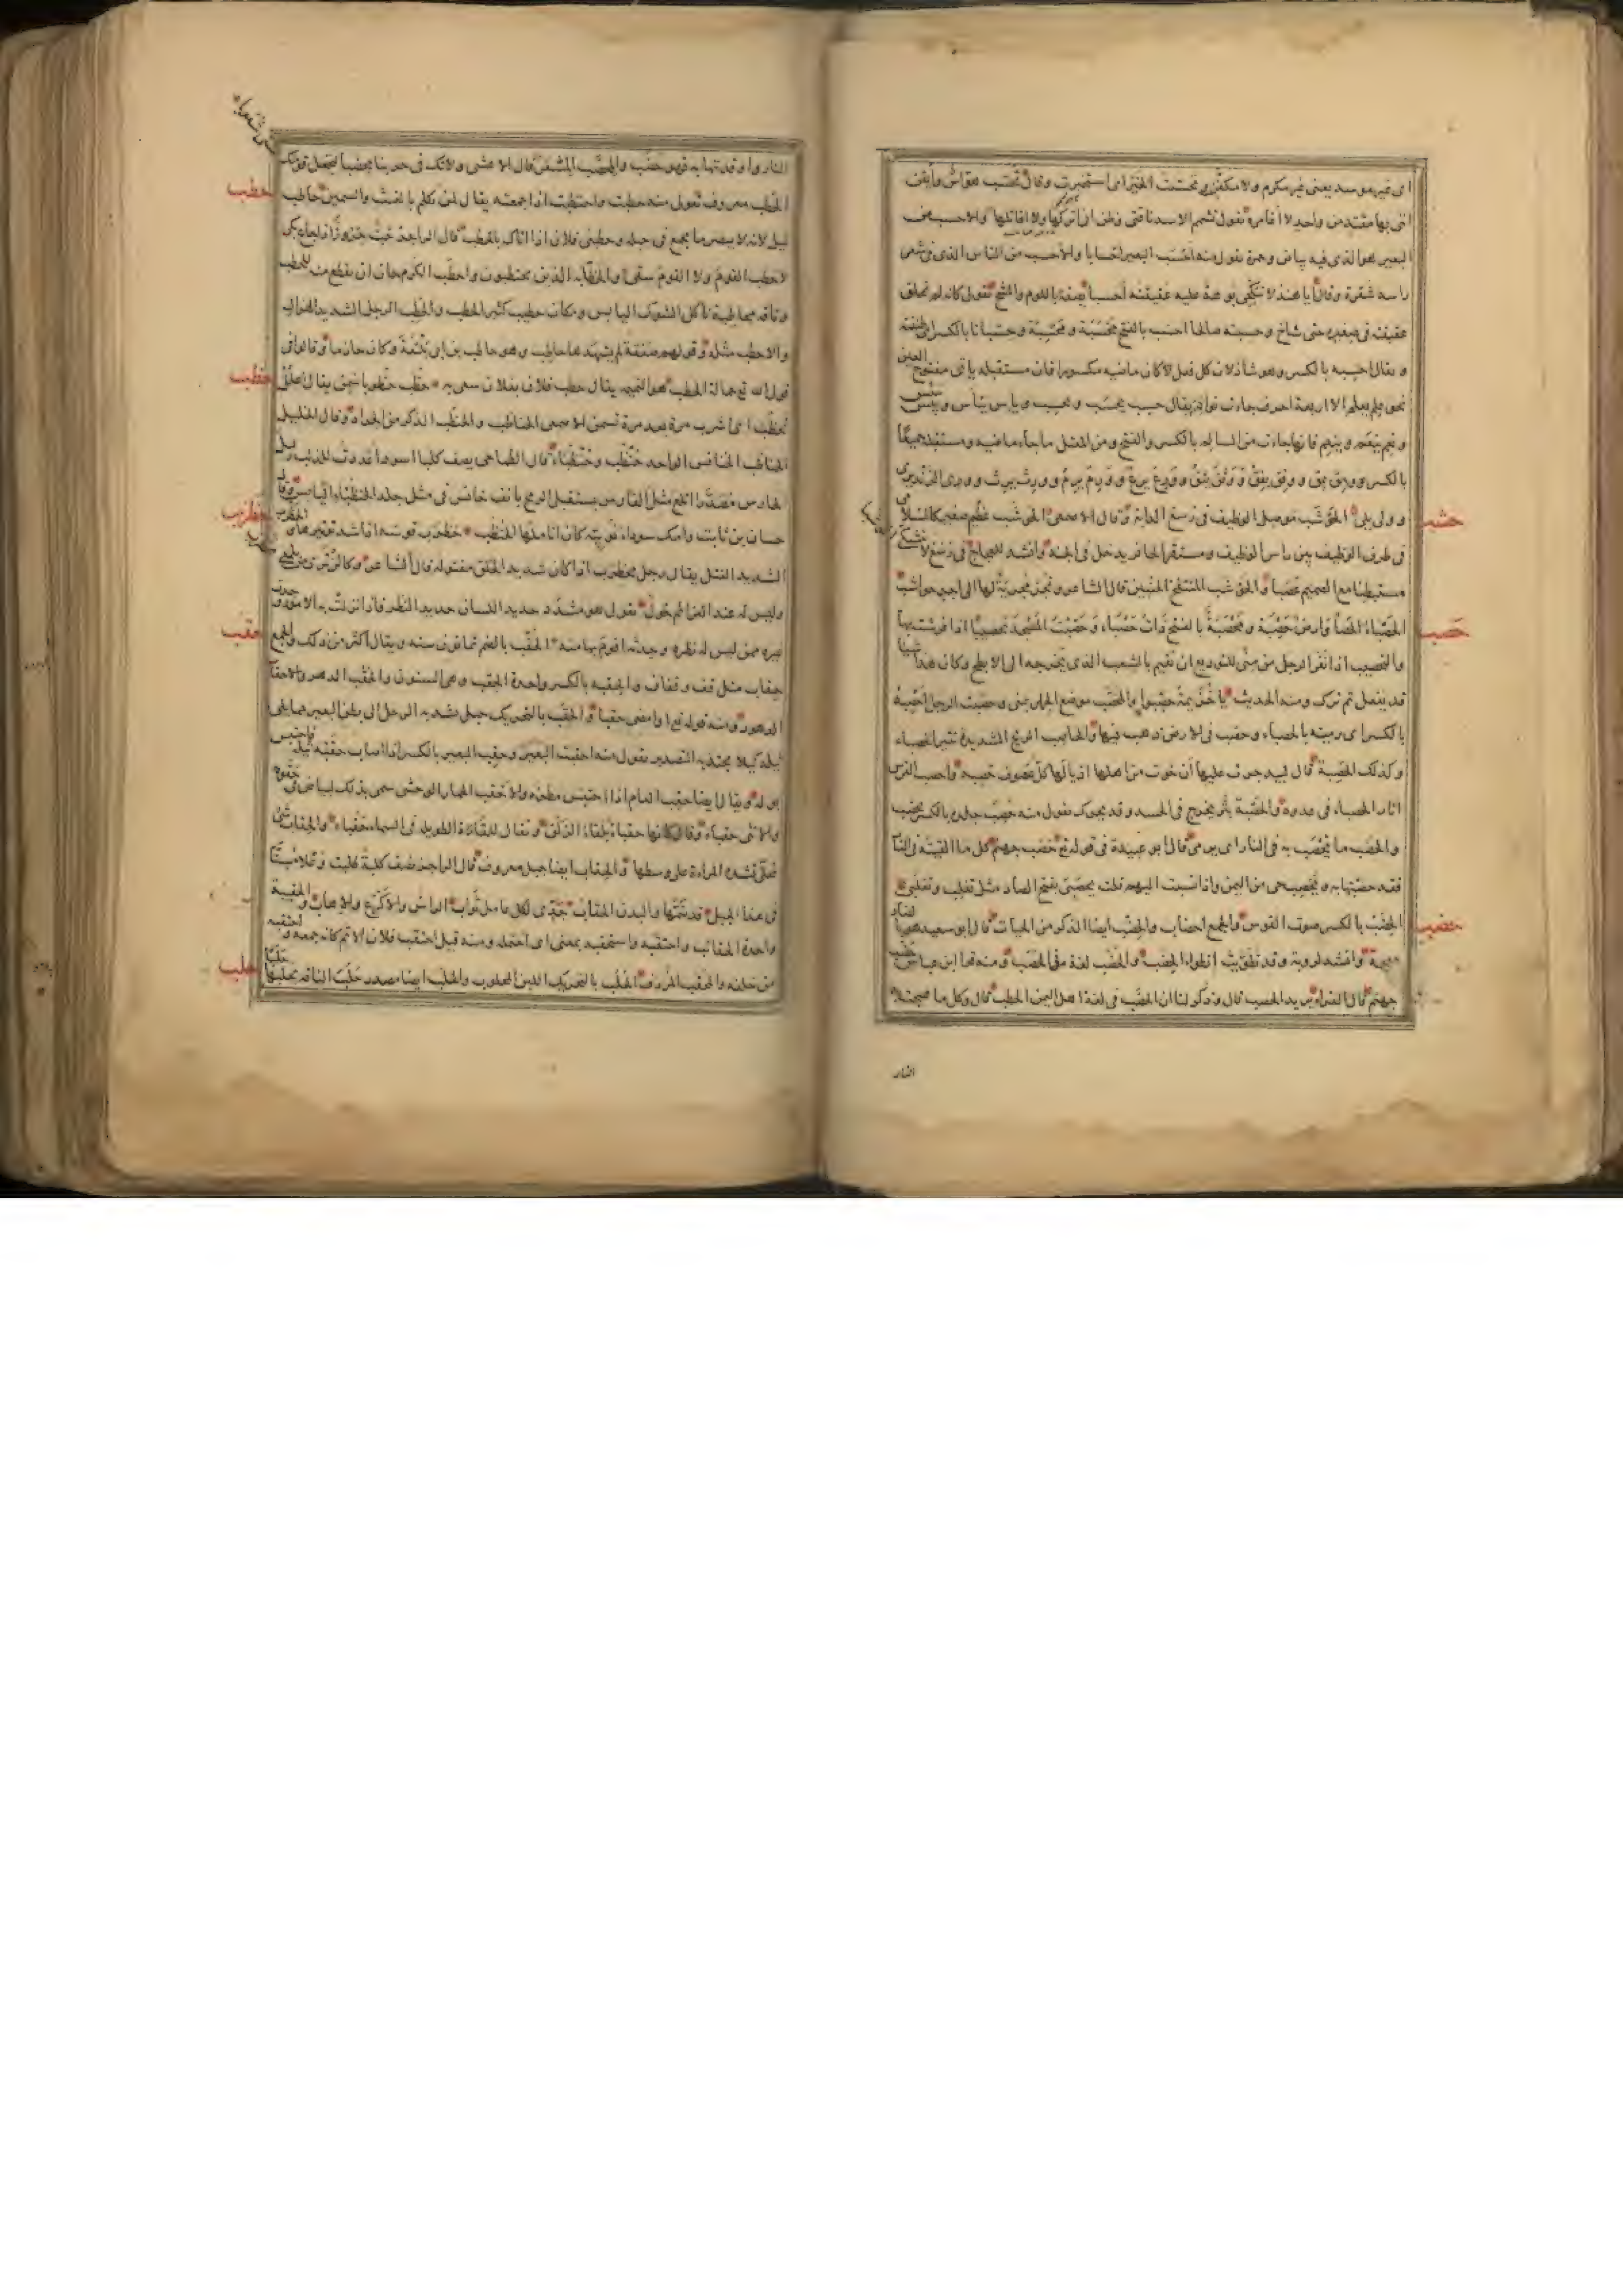 اى غير موسد يعنى غير مكرم ولا مكفن وتحسبت الخبر اى استخبرت وقال تحسب هواس وايقن
انى بها مفتد من واحد لا اغامره تقول تشمم الاسد ناقتى وظن انى اتركها ولا اقاتله والاحسب من
البعير هو الذى فيه بياض وحمرة تقول منه احسب البعير احسابا والاحسب من الناس الذى فى شعر
راسه شقرة وقال ايا هند لا تنكحى بوهة عليه عقيقته احسبا يصفه باللوم والشح يقول كانه لم تحلق
عقيقته فى صغره حتى شاخ وحسبته صالحا احسبه بالفتح محسبة ومحسبة وحسبانا بالكسر اى ظننته
ويقال احسبه بالكسر وهو شاذ لان كل فعل كان ماضيه مكسورا فان مستقبله ياتى مفتوح العين
نحو علم يعلم الا اربعة احرف جاءت نوادر يقال حسب يحسب ويحسب ويبس ييبس وييبس
ونعم ينعم وينعم فانها جاءت من السالم بالكسر والفتح ومن المعتل ما جاء ماضيه ومستقبله جميعا
بالكسر ومق يمق ووفق يفق ووثق يثق وورع يرع وورم يرم وورث يرث وورى الزند يرى
وولى يلى الحوشب موصل الوظيف فى رسغ الدابة وقال الاصمعى الحوشب عظم صغير كالسلامى
فى طرف الوظيف بين راس الوظيف ومستقر الحافر يدخل فى الجبة وانشد للعجاج فى رسغ لا يتشكى
مستبطنا مع الصميم عصبا والحوشب المنتفخ الجنبين قال الشاعر وتجر مجرية لها لحمى الى اجر حواشب
الحصباء الحصا وارض حصبة ومحصبة بالفتح ذات حصباء وحصبت المسجد تحصيبا اذا فرشته بها
والتحصيب اذا نفر الرجل من منى للتوديع ان تقيم بالشعب الذى يخرجه الى الابطح وكان هذا شيئا
قد يفعل ثم ترك ومنه الحديث يا خزيمة حصبوا والمحصب موضع الجمار بمنى وحصبت الرجل احصبه
بالكسر اى رميته بالحصباء وحصب فى الارض ذهب فيها والحاصب الريح الشديدة تثير الحصباء
وكذلك الحصبة قال لبيد جرت عليها ان خوت من اهلها اذيالها كل عصوف حصبة واحصب الفرس
اثار الحصباء فى عدوه والحصبة بثر يخرج فى الجسد وقد يحرك تقول منه حصب جلده بالكسر يحصب
والحصب ما تحصب به فى النار اى يرمى قال ابو عبيدة فى قوله تع حصب جهنم كل ما القيته فى النار
فقد حصبتها به ويحصب حى من اليمن واذا نسبت اليهم قلت يحصبى بفتح الصاد مثل تغلب وتغلبى
الحضب بالكسر صوت القوس والجمع احضاب والحضب ايضا الذكر من الحيات قال ابو سعيد هو بالضاد
معجمة وانشد لروبة وقد تطويت انطواء الحضب والحضب لغة فى الحصب ومنه قرا ابن عباس حضب
جهنم قال الفراء يريد الحصب قال وذكر لنا ان الحضب فى لغة اهل اليمن الحطب قال وكل ما هيجت به
حشب
حصب
حضب
النار
النار او اوقدتها به فهو حضب والمحضب المسعر قال الاعشى ولا تك فى حربنا محضبا لتجعل قومك
الحطب معروف تقول منه حطبت واحتطبت اذا جمعته يقال لمن تكلم بالغث والسمين حاطب
ليل لانه لا يبصر ما يجمع فى حبله وحطبنى فلان اذا اتاك بالحطب قال الراجز خب جروز واذا جاع بكى
لا حطب القوم ولا القوم سقى والحطابة الذين يحتطبون واحطب الكرم حان ان يقطع منه للحطب
وناقة محاطبة تاكل الشوك اليابس ومكان حطيب كثير الحطب والحطب الرجل الشديد الهزال
والاحطب مثله وقولهم صفقة لم يشهدها حاطب وهو حاطب بن ابى بلتعة وكان حازما وقالوا فى
قول الله تع حمالة الحطب هو النميمة يقال حطب فلان بفلان سعى به حظب حظوبا سمن يقال اعلل
تحظب اى اشرب مرة بعد مرة تسمن الاصمعى الحناظب والحنظب الذكر من الجراد وقال الخليل
الحناظب الخنافس الواحد حنظب وحنظباء قال الطماحى يصف كلبا اسود اعددت للذئب وليل
الحارس مصدرا اتلع مثل الفارس يستقبل الريح بانف خانس فى مثل جلد الحنظباء اليابس وقال
حسان بن ثابت وامك سوداء نوبية كان اناملها الحنظب حظرب قوسه اذا شد توتيرها والمحظرب
الشديد الفتل يقال رجل محظرب اذا كان شديد الخلق مفتوله قال الشاعر وكائن ترى من يلمعى
وليس له عند العزائم جول يقول هو مشدد حديد اللسان حديد النظر فاذا نزلت به الامور وجدت
غيره ممن ليس له نظره وحدته اقوم بها منه الحقب بالضم ثمانون سنة ويقال اكثر من ذلك والجمع
حقاب مثل قف وقفاف والحقبة بالكسر واحدة الحقب وهى السنون والحقب الدهر والاحقاب
الدهور ومنه قوله تع او امضى حقبا والحقب بالتحريك حبل يشد به الرحل الى بطن البعير مما يلى
ثيله كيلا يجتذبه التصدير تقول منه احقبت البعير وحقب البعير بالكسر اذا اصاب حقبه ثيله فاحتبس
بوله ويقال ايضا حقب العام اذا احتبس مطره والاحقب الحمار الوحشى سمى بذلك لبياض فى حقويه
والانثى حقباء وقال كانها حقباء بلقاء الزلق ويقال للقارة الطويلة فى السماء حقباء والحقاب شئ
محلى تشده المراة على وسطها والحقاب ايضا جبل معروف قال الراجز يصف كلبة طلبت وعلا مسنا
فى هذا الجبل قد ضمها والبدن الحقاب جدى لكل عامل ثواب الراس والاكرع والاهاب والحقيبة
واحدة الحقائب واحتقبه واستحقبه بمعنى اى احتمله ومنه قيل احتقب فلان الاثم كانه جمعه واحتقبه
من خلفه والمحقب المردف الحلب بالتحريك اللبن المحلوب والحلب ايضا مصدر حلب الناقة يحلبها
حطب
حظب
حظرب
حقب
حلب